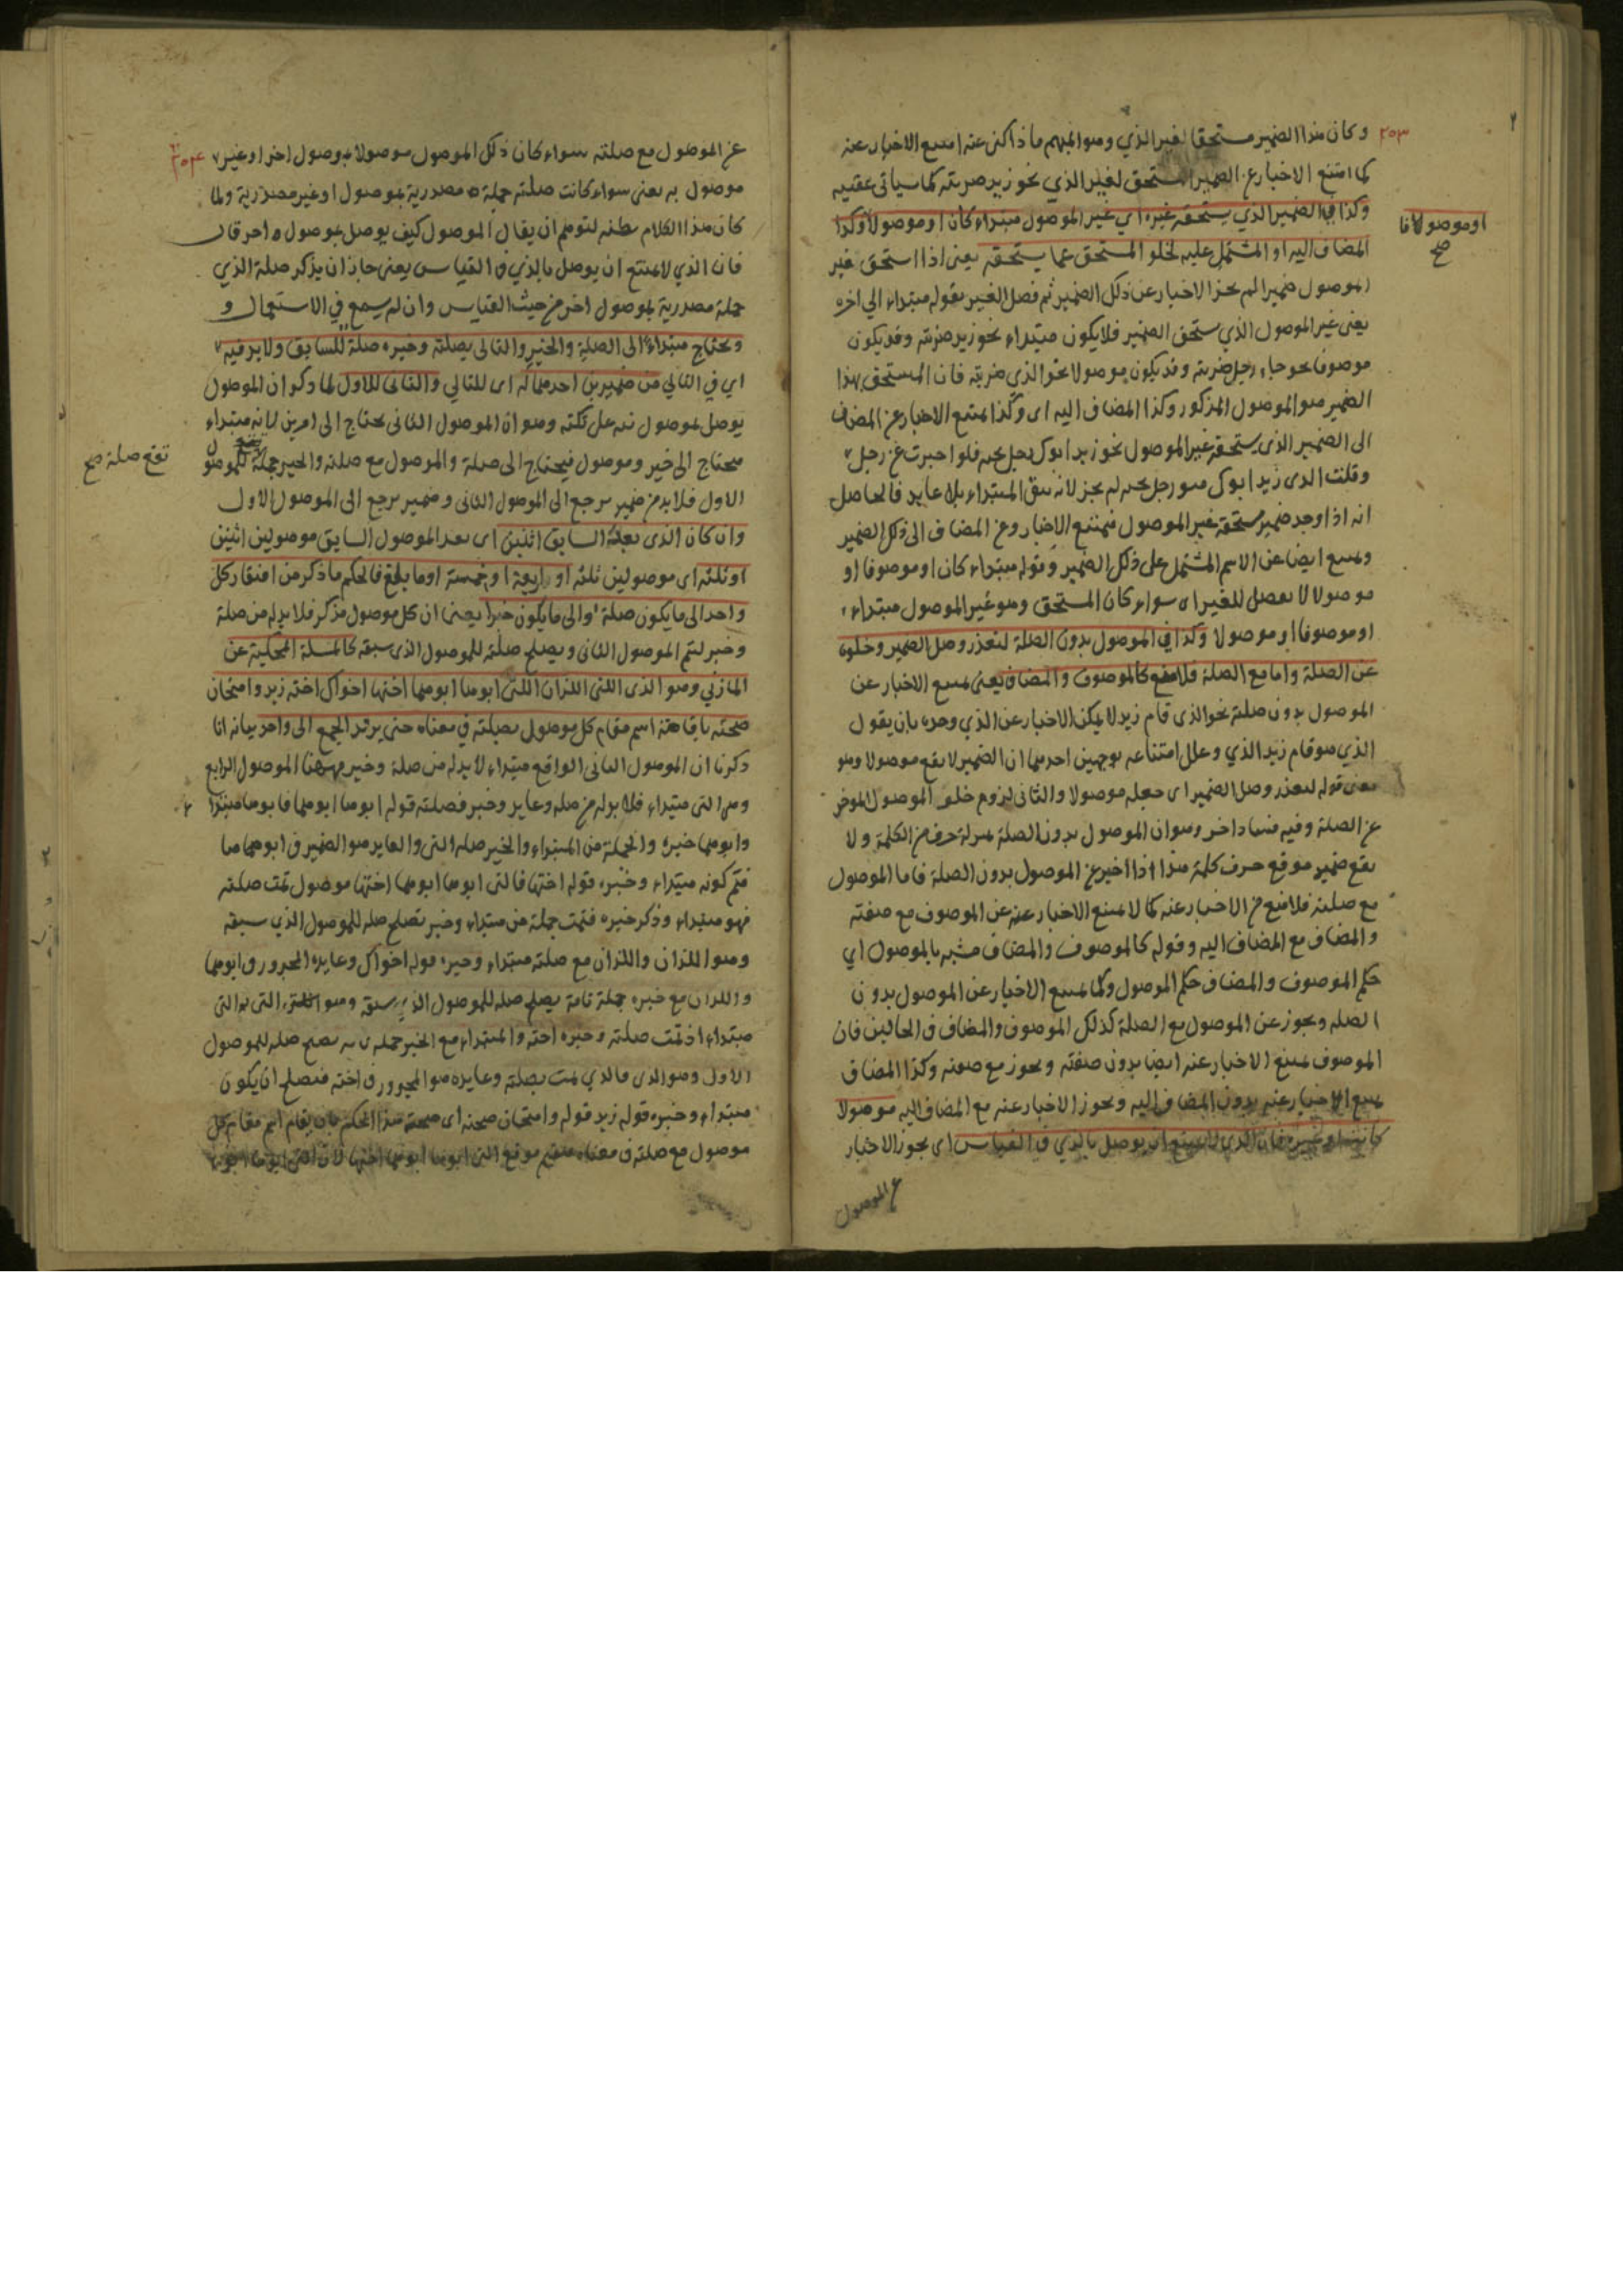 وكان هذا الضمير مستحقا لغير الذي وهو المبهم ماذا كنى عنه امتنع الاخبار عنه
كما امتنع الاخبار عن الضمير المستحق لغير الذي نحو زيد ضربته كما سياتي عقيبه
وكذا في الضمير الذي يستحقه غيره اي غير الموصول مبتداء كان او موصولا وكذا
المضاف اليه او المشتمل عليه لخلو المستحق عما يستحقه يعني اذا استحق غير
الموصول ضميرا لم يجز الاخبار عن ذلك الضمير ثم فصل الغير بقوله مبتداء الى اخره
يعني غير الموصول الذي ستحق الضمير فلا يكون مبتداء نحو زيد ضربته وقد يكون
موصوفا نحو جاء رجل ضربته وقد يكون موصولا نحو الذي ضربته فان المستحق بهذا
الضمير هو الموصول المذكور وكذا المضاف اليه اى وكذا يمتنع الاخبار عن المضاف
الى الضمير الذي يستحقه غير الموصول نحو زيد ابوك رجل فلو اخبرت عن رجل
وقلت الذى زيد ابوك هو رجل لم يجز لانه يبقى المبتداء بلا عايد فالحاصل
انه اذا وجد ضمير مستحقه غير الموصول فيمتنع الاخبار وعن المضاف الى ذلك الضمير
ويمتنع ايضا عن الاسم المشتمل على ذلك الضمير وقوله مبتداء كان او موصوفا او
موصولا لا تفصيل للغير اى سواء كان المستحق وهو غير الموصول مبتداء
او موصوفا او موصولا وكذا في الموصول بدون الصلة لتعذر وصل الضمير وخلوه
عن الصلة واما مع الصلة فلا منع كالموصوف والمضاف يعني يمتنع الاخبار عن
الموصول بدون صلته نحو الذى قام زيد لا يمكن الاخبار عن الذي وحده بان يقول
الذي هو قام زيد الذي وعلل امتناعه بوجهين احدهما ان الضمير لا يقع موصولا وهو
معنى قوله لتعذر وصل الضمير اى جعله موصولا والثانى لزوم خلو الموصول الموخر
عن الصلة وفيه فساد اخر وهو ان الموصول بدون الصلة بمنزلة حرف من الكلمة ولا
يقع ضمير موقع حرف كلمة هذا اذا اخبر عن الموصول بدون الصلة فاما الموصول
مع صلته فلا منع من الاخبار عنه كما لا يمتنع الاخبار عنه عن الموصوف مع صفته
والمضاف مع المضاف اليه وقوله كالموصوف والمضاف مشبه بالموصول اي
حكم الموصوف والمضاف حكم الموصول وكما يمتنع الاخبار عن الموصول بدون
الصله ويجوز عن الموصول مع الصلة كذلك الموصوف والمضاف في الحالين فان
الموصوف يمتنع الاخبار عنه ايضا بدون صفته ويجوز مع صفته وكذا المضاف
يمتنع الاخبار عنه بدون المضاف اليه ويجوز الاخبار عنه مع المضاف اليه موصولا
كانت او غيره فان الذي لا يمتنع ان يوصل بالذي في القياس اى يجوز الاخبار
عن الموصول
٢٥٣
او موصولا فا
صح
٢
عن الموصول مع صلته سواء كان ذلك الموصول موصولا بموصول اخر او غير
موصول به يعنى سواء كانت صلته جملة مصدرية بموصول او غير مصدرية ولما
كان هذا الكلام مظنه لتوهم ان يقال الموصول كيف يوصل بموصول اخر قال
فان الذي لا يمتنع ان يوصل بالذي في القياس يعنى جاز ان يذكر صلة الذي
جملة مصدرية بموصول اخر من حيث القياس وان لم يسمع في الاستعمال و
ويحتاج مبتداء الى الصلة والخبر والتالى بصلته وخبره صلة للسابق ولا بد فيه
اي في التالي من ضميرين احدهما له اى للتالي والثانى للاول لما ذكر ان الموصول
يوصل بموصول نبه على نكتة وهو ان الموصول الثانى يحتاج الى امرين لما انه مبتداء
يحتاج الى خبر وموصول فيحتاج الى صلة والموصول مع صلته والخبر جملة للموصول
الاول فلا بد من ضمير يرجع الى الموصول الثانى وضمير يرجع الى الموصول الاول
وان كان الذى بعد السابق اثنين اى بعد الموصول السابق موصولين اثنين
او ثلثه اى موصولين ثلثه او اربعة او خمسة او ما بلغ فالحكم ما ذكر من افتقار كل
واحد الى ما يكون صلة والى ما يكون خبرا يعنى ان كل موصول مذكر فلا بد له من صلة
وخبر ليتم الموصول الثانى ويصلح صلة للموصول الذى سبقه كالمسئلة المحكية عن
المازني وهو الذى اللتى اللذان اللتى ابوها ابوهما اختها اخواك اخته زيد وامتحان
صحته باقامة اسم مقام كل موصول بصلته في معناه حتى يرتد الجمع الى واحد بيانه انا
ذكرنا ان الموصول الثانى الواقع مبتداء لا بد له من صلة وخبر فههنا الموصول الرابع
وهى التى مبتداء فلا بد له من صله وعايد وخبر فصلته قوله ابوها ابوهما فابوها مبتدا
وابوهما خبره والجملة من المبتداء والخبر صله التى والعايد هو الضمير في ابوهما ها
فتم كونه مبتداء وخبره قوله اختها فالتى ابوها ابوهما اختها موصول تمت صلته
فهو مبتداء وذكر خبره فتمت جملة من مبتداء وخبر تصلح صله للموصول الذي سبقه
وهو اللذان واللذان مع صلته مبتداء وخبره قوله اخواك وعايده المجرور في ابوهما
واللذان مع خبره جملة تامة يصلح صله للموصول الذي سبقه وهو اللتى التى
مبتداء اذ تمت صلته وخبره اخته والمبتداء مع الخبر جمله تامه تصلح صله للموصول
الاول وهو الذى فالذي تمت بصلته وعايده هو المجرور في اخته فيصلح ان يكون
مبتداء وخبره قوله زيد قوله وامتحان صحته اى صحة هذا الحكم بان يقام اسم مقام كل
موصول مع صلته في معناه فيقيم موقع التى ابوها ابوهما اختها لان التى ابوها ابوهما
٢٥٤
تقع صلة صح